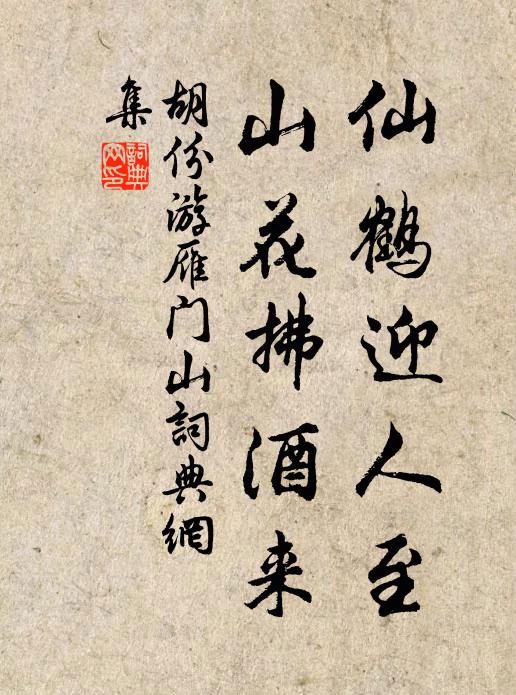 仙鹤迎人至
山花拂酒来
胡份游雁门山詞典網
集
詞典
网印